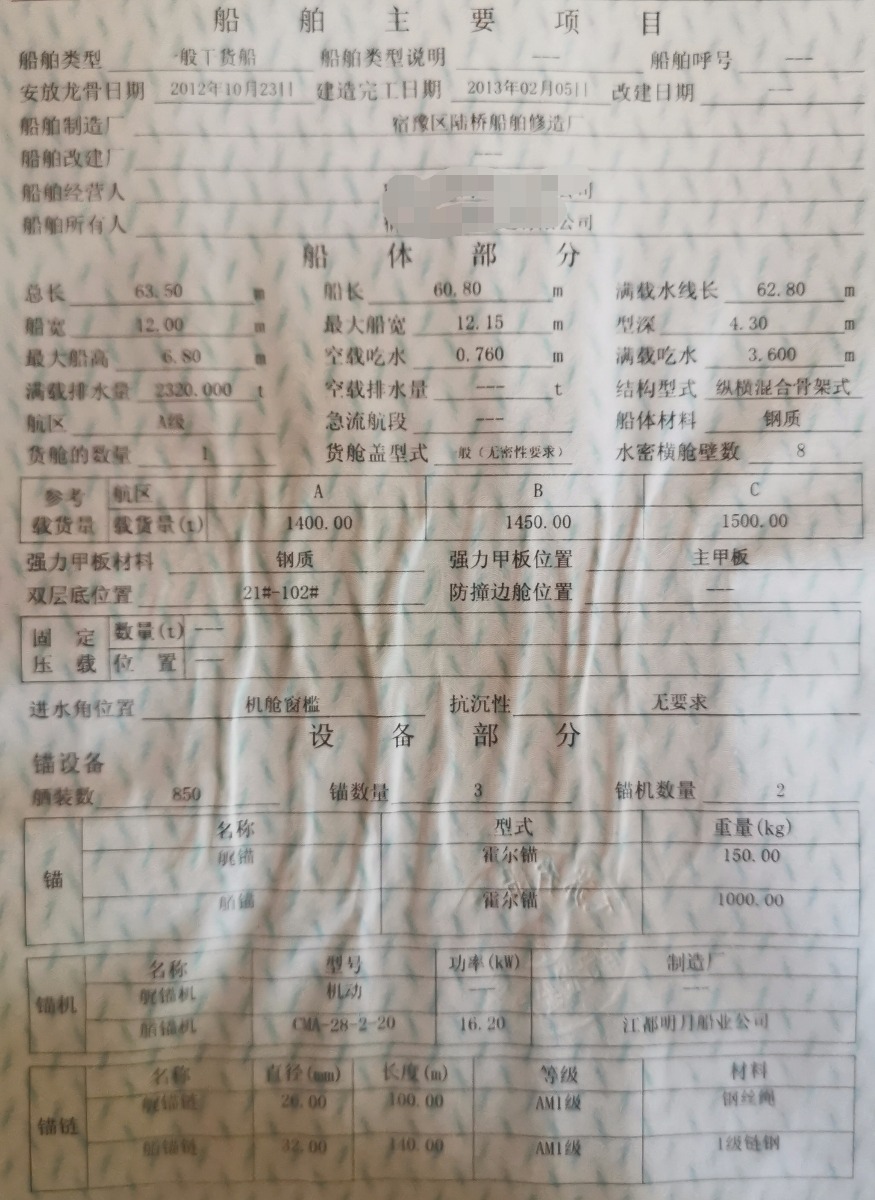 船舶主要项目
船舶类型 一般干货船 船舶类型说明 --- 船舶呼号 ---
安放龙骨日期 2012年10月23日 建造完工日期 2013年02月05日 改建日期 ---
船舶制造厂 宿豫区陆桥船舶修造厂
船舶改建厂 ---
船舶经营人 公司
船舶所有人 公司
船体部分
总长 63.50 m 船长 60.80 m 满载水线长 62.80 m
船宽 12.00 m 最大船宽 12.15 m 型深 4.30 m
最大船高 6.80 m 空载吃水 0.760 m 满载吃水 3.600 m
满载排水量 2320.000 t 空载排水量 --- t 结构型式 纵横混合骨架式
航区 A级 急流航段 --- 船体材料 钢质
货舱的数量 1 货舱盖型式 般(无密性要求) 水密横舱壁数 8
参考 航区 A B C
载货量 载货量(t) 1400.00 1450.00 1500.00
强力甲板材料 钢质 强力甲板位置 主甲板
双层底位置 21#-102# 防撞边舱位置 ---
固定 数量(t) ---
压载 位置 ---
进水角位置 机舱窗槛 抗沉性 无要求
设备部分
锚设备
舾装数 850 锚数量 3 锚机数量 2
名称 型式 重量(kg)
锚 艉锚 霍尔锚 150.00
艏锚 霍尔锚 1000.00
名称 型号 功率(kW) 制造厂
锚机 艉锚机 机动 --- ---
艏锚机 CMA-28-2-20 16.20 江都明月船业公司
名称 直径(mm) 长度(m) 等级 材料
锚链 艉锚链 26.00 100.00 AM1级 钢丝绳
艏锚链 32.00 140.00 AM1级 1级链钢